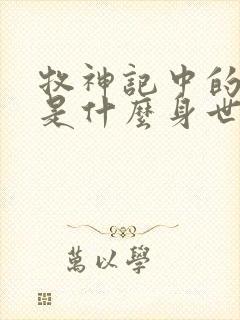 牧神記中的
是什麼身世
萬以學